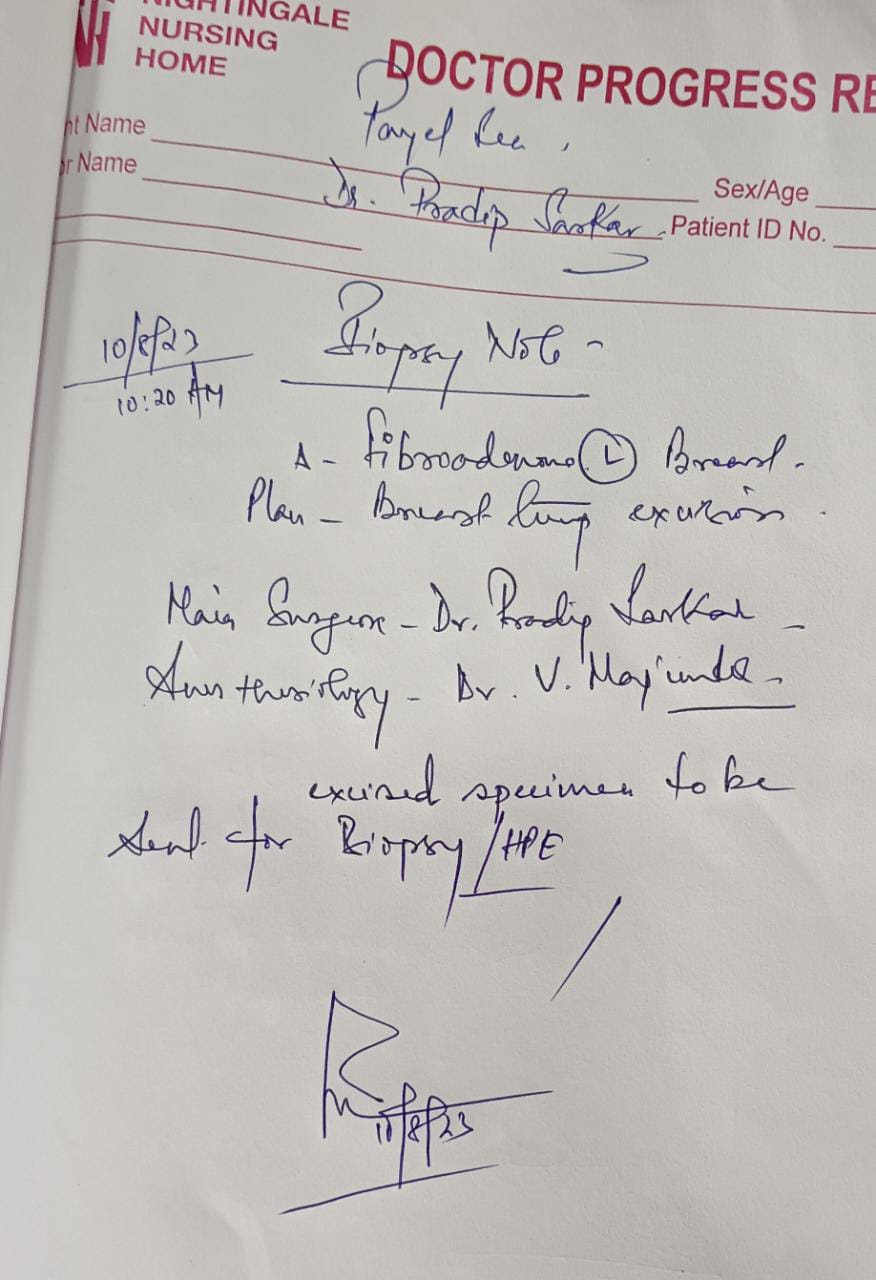 NIGHTINGALE
NURSING
HOME
DOCTOR PROGRESS RE
nt Name Payel
or Name Dr. Pradip Sarkar
Sex/Age
Patient ID No.
10/8/23
10:20 AM
Biopsy Note -
A - fibroadenoma (L) Breast.
Plan - Breast lump excision.
Main Surgeon - Dr. Pradip Sarkar -
Dr. V.
excised specimen to be
sent for Biopsy / HPE
10/8/23